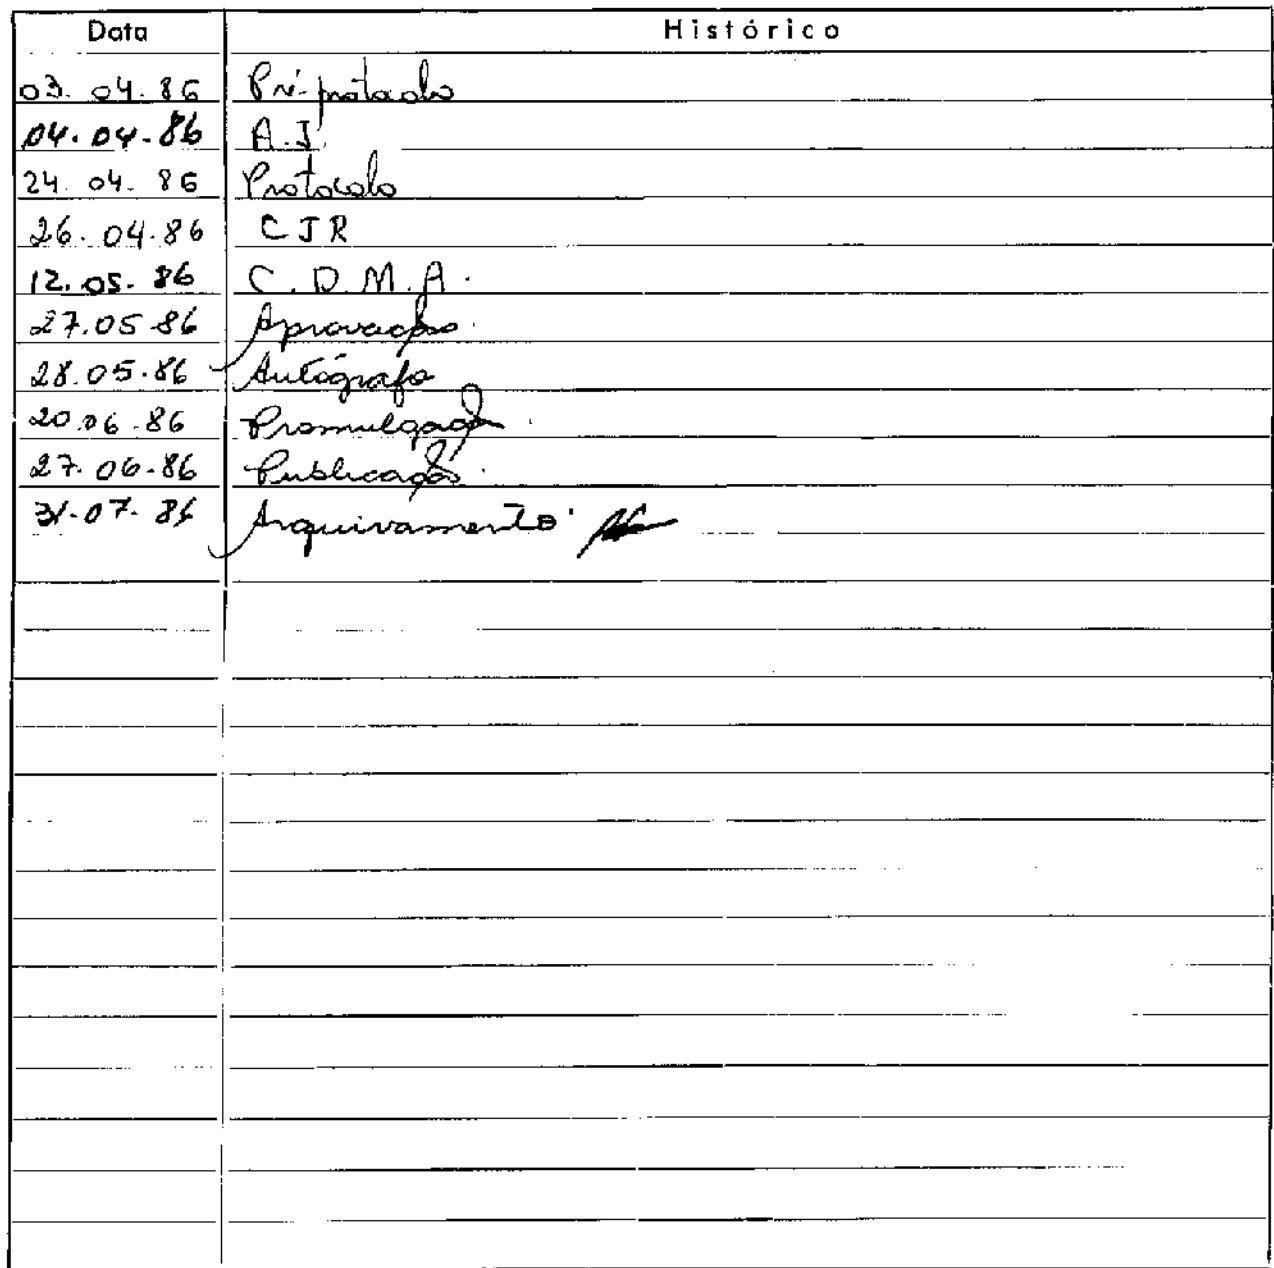 Data Histórico
03.04.86 Pré-protocolo
04.04.86 A.J.
24.04.86 Protocolo
26.04.86 CJR
12.05.86 C.D.M.A.
27.05.86 Aprovação.
28.05.86 Autógrafo
20.06.86 Promulgação.
27.06.86 Publicação.
31.07.86 Arquivamento